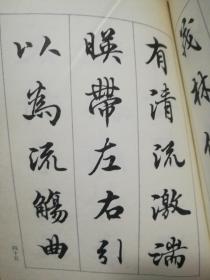 有清流激湍
暎帶左右引
以為流觴曲